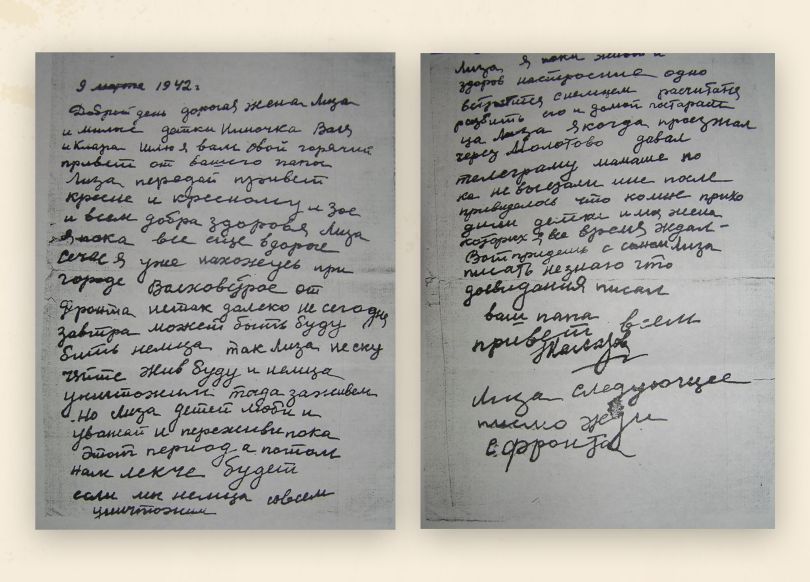 9 марта 1942 г
Добрый день дорогая жена Лиза
и милые детки Валя
и Клара шлю я вам свой горячий
привет от вашего папы
Лиза передай привет
кресне и кресному и Зое
и всем добра здоровя Лиза
я пока все еще здоров
сечас я уже нахожусь при
городе Валховстрое от
фронта нетак далеко не сегодня
завтра может быть буду
бить немца так Лиза не ску
чайте жив буду и немца
уничтожим тогда заживем
но Лиза детей люби и
уважай и переживи пока
этот период а потом
нам лекче будет
если мы немца совсем
уничтожим
Лиза я пока живой и
здоров настроение одно
встретится снемцем расчитатся
разбить его и домой постарат
ца Лиза я когда проезжал
через Молотово давал
телеграму мамаше но
ка не выезжали мне после
привиделось что комне прихо
дили детки и моя жена
которих я все время ждал-
Вот придешь с сыном Лиза
писать незнаю что
досвидания писал
ваш папа
привет всем
Лиза следующее
писмо жди
с фронта